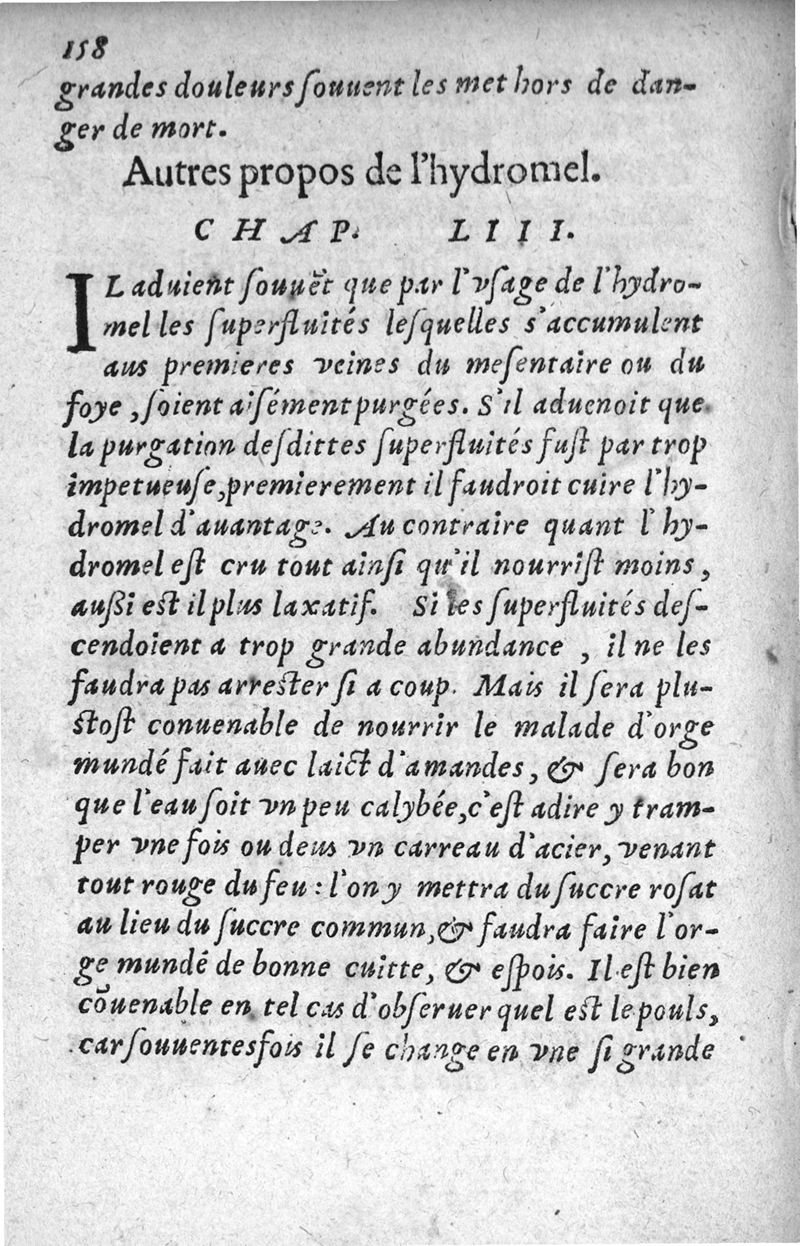 158
grandes douleurs ſouuent les met hors de dan-
ger de mort.
Autres propos de l'hydromel.
CHAP. LIII.
IL aduient ſouuēt que par l'vſage de l'hydro-
mel les ſuperfluités leſquelles s'accumulent
aus premieres veines du meſentaire ou du
foye, ſoient aiſément purgées. S'il aduenoit que
la purgation deſdittes ſuperfluités fuſt par trop
impetueuſe, premierement il faudroit cuire l'hy-
dromel d'auantage. Au contraire quant l'hy-
dromel eſt cru tout ainſi qu'il nourriſt moins,
außi est il plus laxatif. Si les ſuperfluités deſ-
cendoient a trop grande abundance, il ne les
faudra pas arrester ſi a coup. Mais il ſera plu-
stoſt conuenable de nourrir le malade d'orge
mundé fait auec laict d'amandes, & ſera bon
que l'eau ſoit vn peu calybée, c'eſt adire y tram-
per vne fois ou deus vn carreau d'acier, venant
tout rouge du feu : l'on y mettra du ſuccre roſat
au lieu du ſuccre commun, & faudra faire l'or-
ge mundé de bonne cuitte, & eſpois. Il eſt bien
cōuenable en tel cas d'obſeruer quel est le pouls,
car ſouuentesfois il ſe change en vne ſi grande